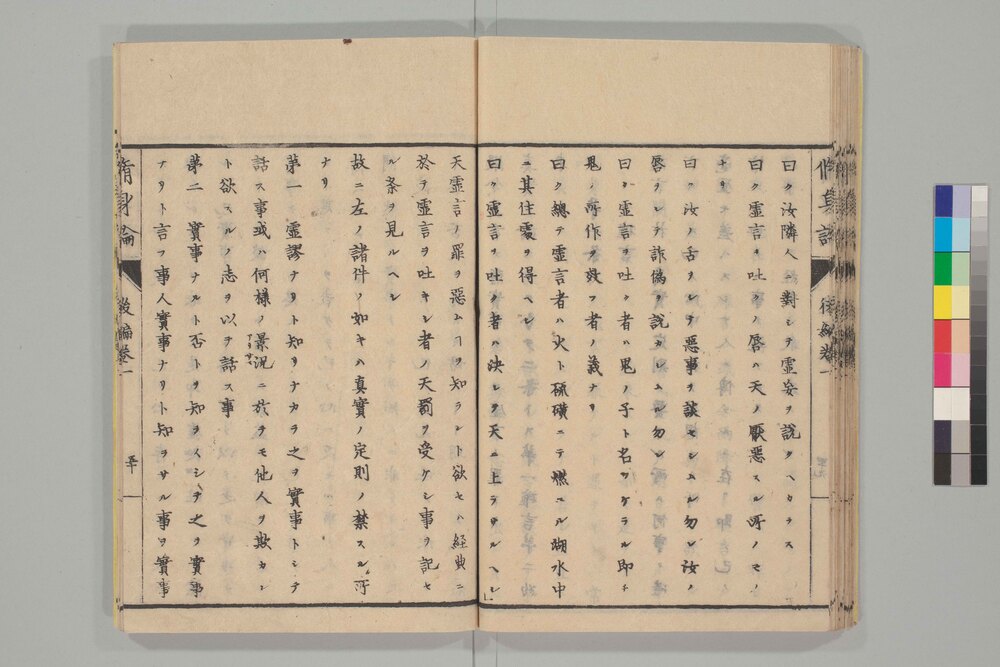 曰ク汝隣人ニ對シテ虛妄ヲ說クヘカラス
曰ク虛言ヲ吐クノ唇ハ天ノ厭惡スル所ノモノ
ナリ
曰ク汝ノ舌ヲシテ惡事ヲ談セシムル勿レ汝ノ
唇ヲシテ詐偽ヲ說カシムル勿レ
曰ク虛言ヲ吐ク者ハ鬼ノ子ト名ツケラル即チ
鬼ノ所作ヲ效フ者ノ義ナリ
曰ク總テ虛言者ハ火ト硫磺ニテ燃ユル湖水中
ニ其住處ヲ得ヘシ
曰ク虛言ヲ吐ク者ハ決シテ天ニ上ラサルヘシ
天虛言ノ罪ヲ惡ムヿヲ知ラント欲セハ経典ニ
於テ虛言ヲ吐キシ者ノ天罰ヲ受ケシ事ヲ記セ
ル条ヲ見ルヘシ
故ニ左ノ諸件ノ如キハ真實ノ定則ノ禁スル所
ナリ
第一 虛謬ナリト知リナカラ之ヲ實事トシテ
話ス事或ハ何様ノ景況ニ於テモ他人ヲ欺カン
ト欲スルノ志ヲ以テ話ス事
第二 實事ナルト否トヲ知ラスシテ之ヲ實事
ナリト言フ事人實事ナリト知ラサル事ヲ實事
脩身論 後編巻一 五十